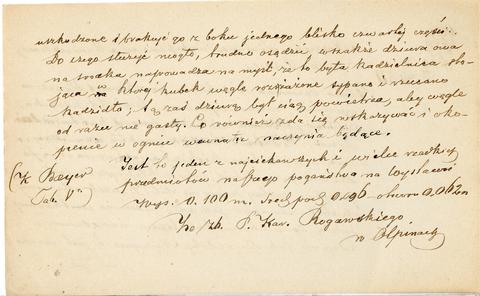 uszkodzone i brakuje go z boku jednego blisko czwartej części.
Do czego służyć mogło, trudno osądzić, wszakże dziura owa
na środka, naprowadza na myśl, że to była kadzielnica sto-
jąca w której kubek węgle rozżarzone sypano i rzucano
kadzidło; tą zaś dziurą był ciąg powietrza, aby węgle
od razu nie gasły. Co również zda się wskazywać i oko-
pcenie w ogniu wewnątrz naczynia będące.
Jest to jeden z najciekawszych i wielce rzadkich
przedmiotów naszego pogaństwa na wystawie
(K Beyer
Tab. V
Wys. 0.100 m. 0.096 - otworu 0,062 m
Ze zb. P. Kar. Rogawskiego
w Ołpinach